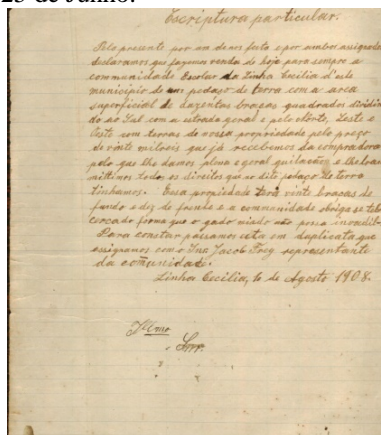 25 de Junho.
Escriptura particular.
Pela presente por um de nos feita e por ambos assignada
declaramos que fazemos venda de hoje para sempre a
communidade Escolar da Linha Cecilia d'este
municipio de um pedaço de terra com a area
superficial de duzentas braças quadrados dividin
do ao Sul com a estrada geral e pelo Norte, Leste e
Oeste com terras de nossa propriedade pelo preço
de vinte milreis que já recebemos da compradora
pelo que lhe damos plena e geral quitação e lhe trans
mittimos todos os direitos que no dito pedaço de terra
tinhamos. Essa propriedade terá vinte braças de
fundo e dez de frente e a communidade obriga-se tel-o
cercado firma que o gado miudo não possa invadil-o
Para constar passamos esta em duplicata que
assignamos com o Snr. Jacob Frey representante
da communidade.
Linha Cecilia, de Agosto 1908.
Illmo
Snr.